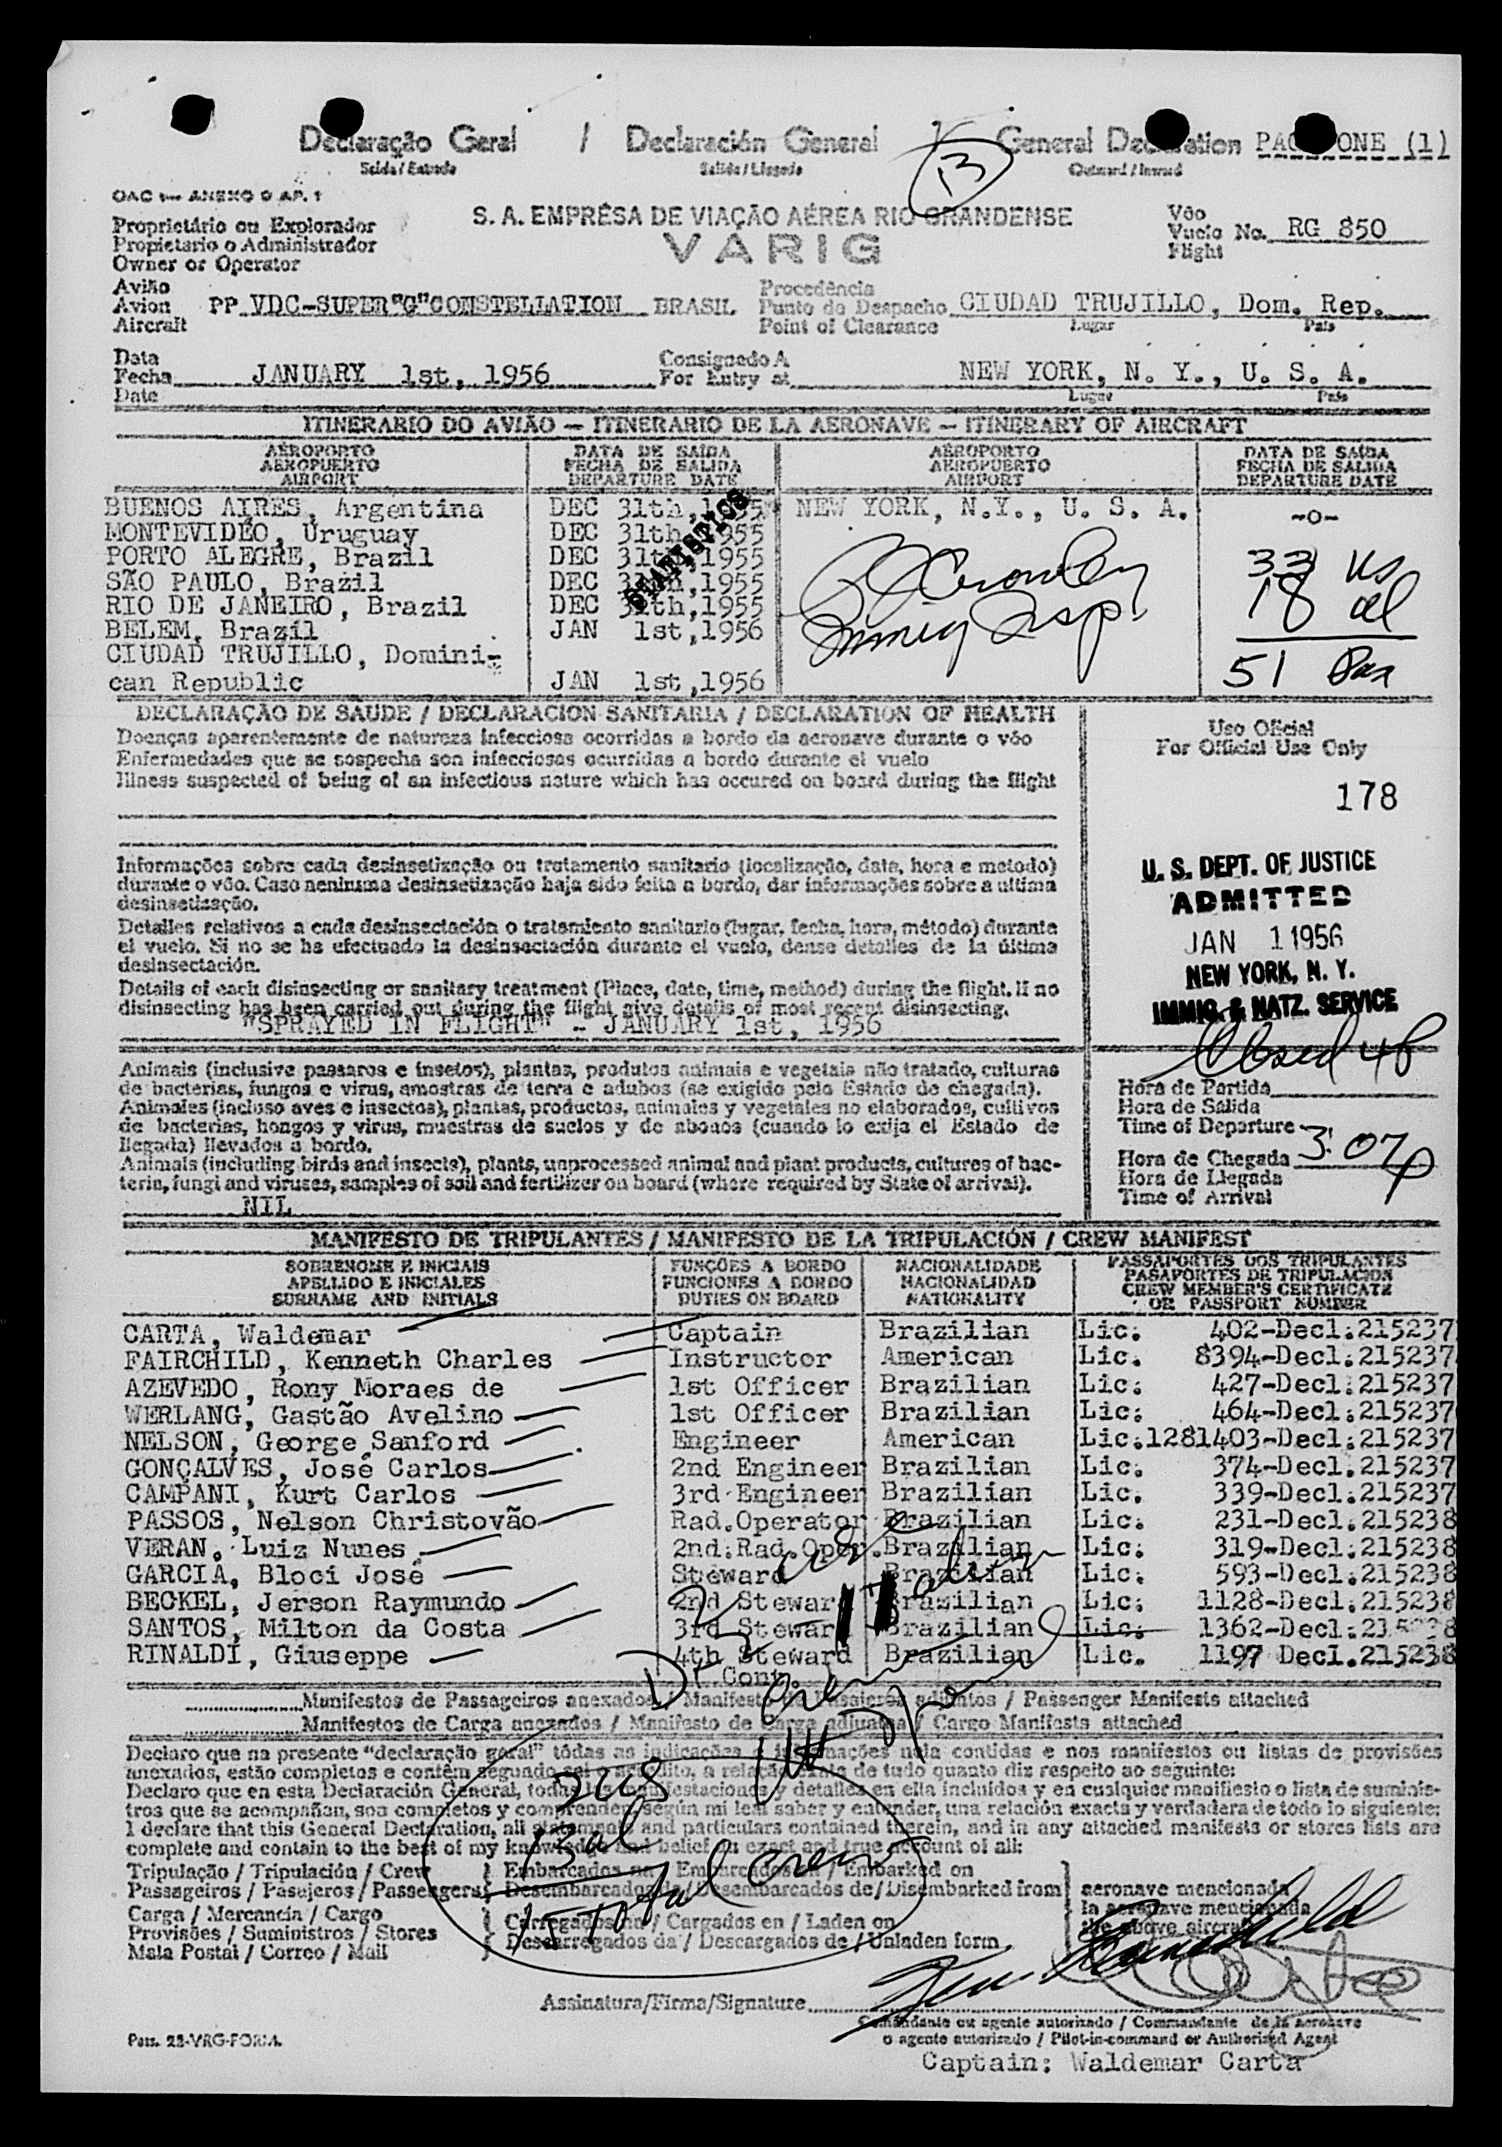 Declaração Geral / Declaración General / General Declaration PAGE ONE (1)
Saída / Entrada Salida / Llegada Outward / Inward
13
OAC — ANEXO 9 AP. 1
Proprietário ou Explorador
Propietario o Administrador
Owner or Operator
S. A. EMPRÊSA DE VIAÇÃO AÉREA RIO GRANDENSE
VARIG
Vôo
Vuelo No. RG 850
Flight
Avião
Avion PP VDC-SUPER"G"CONSTELLATION BRASIL
Aircraft
Procedência
Punto de Despacho CIUDAD TRUJILLO, Dom. Rep.
Point of Clearance Lugar País
Data
Fecha JANUARY 1st, 1956
Date
Consignado A
For Entry at NEW YORK, N. Y., U. S. A.
Lugar País
ITINERARIO DO AVIÃO — ITINERARIO DE LA AERONAVE — ITINERARY OF AIRCRAFT
AÉROPORTO DATA DE SAÍDA AÉROPORTO DATA DE SAÍDA
AEROPUERTO FECHA DE SALIDA AEROPUERTO FECHA DE SALIDA
AIRPORT DEPARTURE DATE AIRPORT DEPARTURE DATE
BUENOS AIRES, Argentina DEC 31th,1955 NEW YORK, N.Y., U. S. A. -o-
MONTEVIDÉO, Uruguay DEC 31th,1955
PORTO ALEGRE, Brazil DEC 31th,1955
SÃO PAULO, Brazil DEC 31th,1955
RIO DE JANEIRO, Brazil DEC 31th,1955
BELEM, Brazil JAN 1st,1956
CIUDAD TRUJILLO, Domini-
can Republic JAN 1st,1956
STATISTICS
Crowley
Immig Insp.
33 us
18 al
51 Pax
DECLARAÇÃO DE SAUDE / DECLARACION SANITARIA / DECLARATION OF HEALTH
Doenças aparentemente de natureza infecciosa ocorridas a bordo da aeronave durante o vôo
Enfermedades que se sospecha son infecciosas ocurridas a bordo durante el vuelo
Illness suspected of being of an infectious nature which has occured on board during the flight
Uso Oficial
For Official Use Only
178
Informações sobre cada desinsetização ou tratamento sanitario (localização, data, hora e metodo)
durante o vôo. Caso nenhuma desinsetização haja sido feita a bordo, dar informações sobre a ultima
desinsetização.
Detalles relativos a cada desinsectación o tratamiento sanitario (lugar, fecha, hora, método) durante
el vuelo. Si no se ha efectuado la desinsectación durante el vuelo, dense detalles de la última
desinsectación.
Details of each disinsecting or sanitary treatment (Place, date, time, method) during the flight. If no
disinsecting has been carried out during the flight give details of most recent disinsecting.
"SPRAYED IN FLIGHT" - JANUARY 1st, 1956
U. S. DEPT. OF JUSTICE
ADMITTED
JAN 1 1956
NEW YORK, N. Y.
IMMIG. & NATZ. SERVICE
Animais (inclusive passaros e insetos), plantas, produtos animais e vegetais não tratado, culturas
de bacterias, fungos e virus, amostras de terra e adubos (se exigido pelo Estado de chegada).
Animales (incluso aves e insectos), plantas, productos, animales y vegetales no elaborados, cultivos
de bacterias, hongos y virus, muestras de suelos y de abonos (cuando lo exija el Estado de
llegada) llevados a bordo.
Animais (including birds and insects), plants, unprocessed animal and plant products, cultures of bac-
teria, fungi and viruses, samples of soil and fertilizer on board (where required by State of arrival).
NIL
Hora de Partida
Hora de Salida
Time of Departure
Hora de Chegada 3:07 p
Hora de Llegada
Time of Arrival
MANIFESTO DE TRIPULANTES / MANIFESTO DE LA TRIPULACIÓN / CREW MANIFEST
SOBRENOME E INICIAIS FUNÇÕES A BORDO NACIONALIDADE PASSAPORTES DOS TRIPULANTES
APELLIDO E INICIALES FUNCIONES A BORDO NACIONALIDAD PASAPORTES DE TRIPULACION
SURNAME AND INITIALS DUTIES ON BOARD NATIONALITY CREW MEMBER'S CERTIFICATE
OR PASSPORT NUMBER
CARTA, Waldemar Captain Brazilian Lic. 402-Decl.215237
FAIRCHILD, Kenneth Charles Instructor American Lic. 8394-Decl.215237
AZEVEDO, Rony Moraes de 1st Officer Brazilian Lic. 427-Decl.215237
WERLANG, Gastão Avelino 1st Officer Brazilian Lic. 464-Decl.215237
NELSON, George Sanford Engineer American Lic.1281403-Decl.215237
GONÇALVES, José Carlos 2nd Engineer Brazilian Lic. 374-Decl.215237
CAMPANI, Kurt Carlos 3rd Engineer Brazilian Lic. 339-Decl.215237
PASSOS, Nelson Christovão Rad.Operator Brazilian Lic. 231-Decl.215238
VERAN, Luiz Nunes 2nd.Rad.Oper. Brazilian Lic. 319-Decl.215238
GARCIA, Bloci José Steward Brazilian Lic. 593-Decl.215238
BECKEL, Jerson Raymundo 2nd Steward Brazilian Lic. 1128-Decl.215238
SANTOS, Milton da Costa 3rd Steward Brazilian Lic. 1362-Decl.215238
RINALDI, Giuseppe 4th Steward Brazilian Lic. 1197 Decl.215238
Cont.
Manifestos de Passageiros anexados / Manifestos de Pasajeros adjuntos / Passenger Manifests attached
Manifestos de Carga anexados / Manifesto de Carga adjuntos / Cargo Manifests attached
Declaro que na presente "declaração geral" tôdas as indicações e informações nela contidas e nos manifestos ou listas de provisões
anexados, estão completos e contêm segundo sei e acredito, a relação exata de tudo quanto diz respeito ao seguinte:
Declaro que en esta Declaración General, todas las manifestaciones y detalles en ella incluidos y en cualquier manifiesto o lista de suminis-
tros que se acompañan, son completos y comprenden, según mi leal saber y entender, una relación exacta y verdadera de todo lo siguiente:
I declare that this General Declaration, all statements and particulars contained therein, and in any attached manifests or stores lists are
complete and contain to the best of my knowledge and belief an exact and true account of all:
2 us
13 al
15 Total Crew
Tripulação / Tripulación / Crew Embarcados na / Embarcados en / Embarked on
Passageiros / Pasajeros / Passengers Desembarcados da / Desembarcados de / Disembarked from
Carga / Mercancia / Cargo Carregados na / Cargados en / Laden on
Provisões / Suministros / Stores Descarregados da / Descargados de / Unladen form
Mala Postal / Correo / Mail
aeronave mencionada
la aeronave mencionada
the above aircraft
Assinatura/Firma/Signature
Comandante ou agente autorizado / Commandante de la aeronave
o agente autorizado / Pilot-in-command or Authorized Agent
Captain: Waldemar Carta
Pass. 28-VRG-FORM.